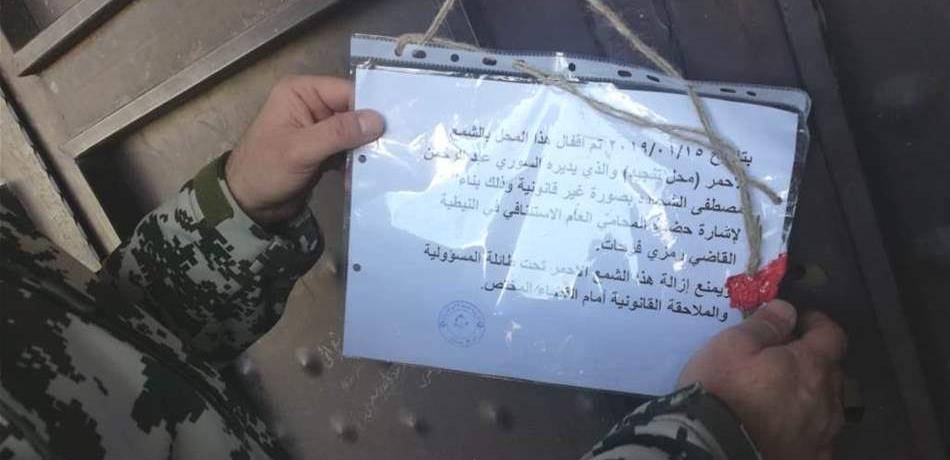 بتاريخ ٢٠١٩/٠١/١٥ تم اقفال هذا المحل بالشمع
الاحمر (محل تنجيد) والذي يديره السوري عبد الرحمن
مصطفى بصورة غير قانونية وذلك بناءً
لإشارة حضرة المحامي العام الاستئنافي في النبطية
القاضي رمزي فرحات.
ويمنع إزالة هذا الشمع الاحمر تحت طائلة المسؤولية
والملاحقة القانونية أمام القضاء المختص.